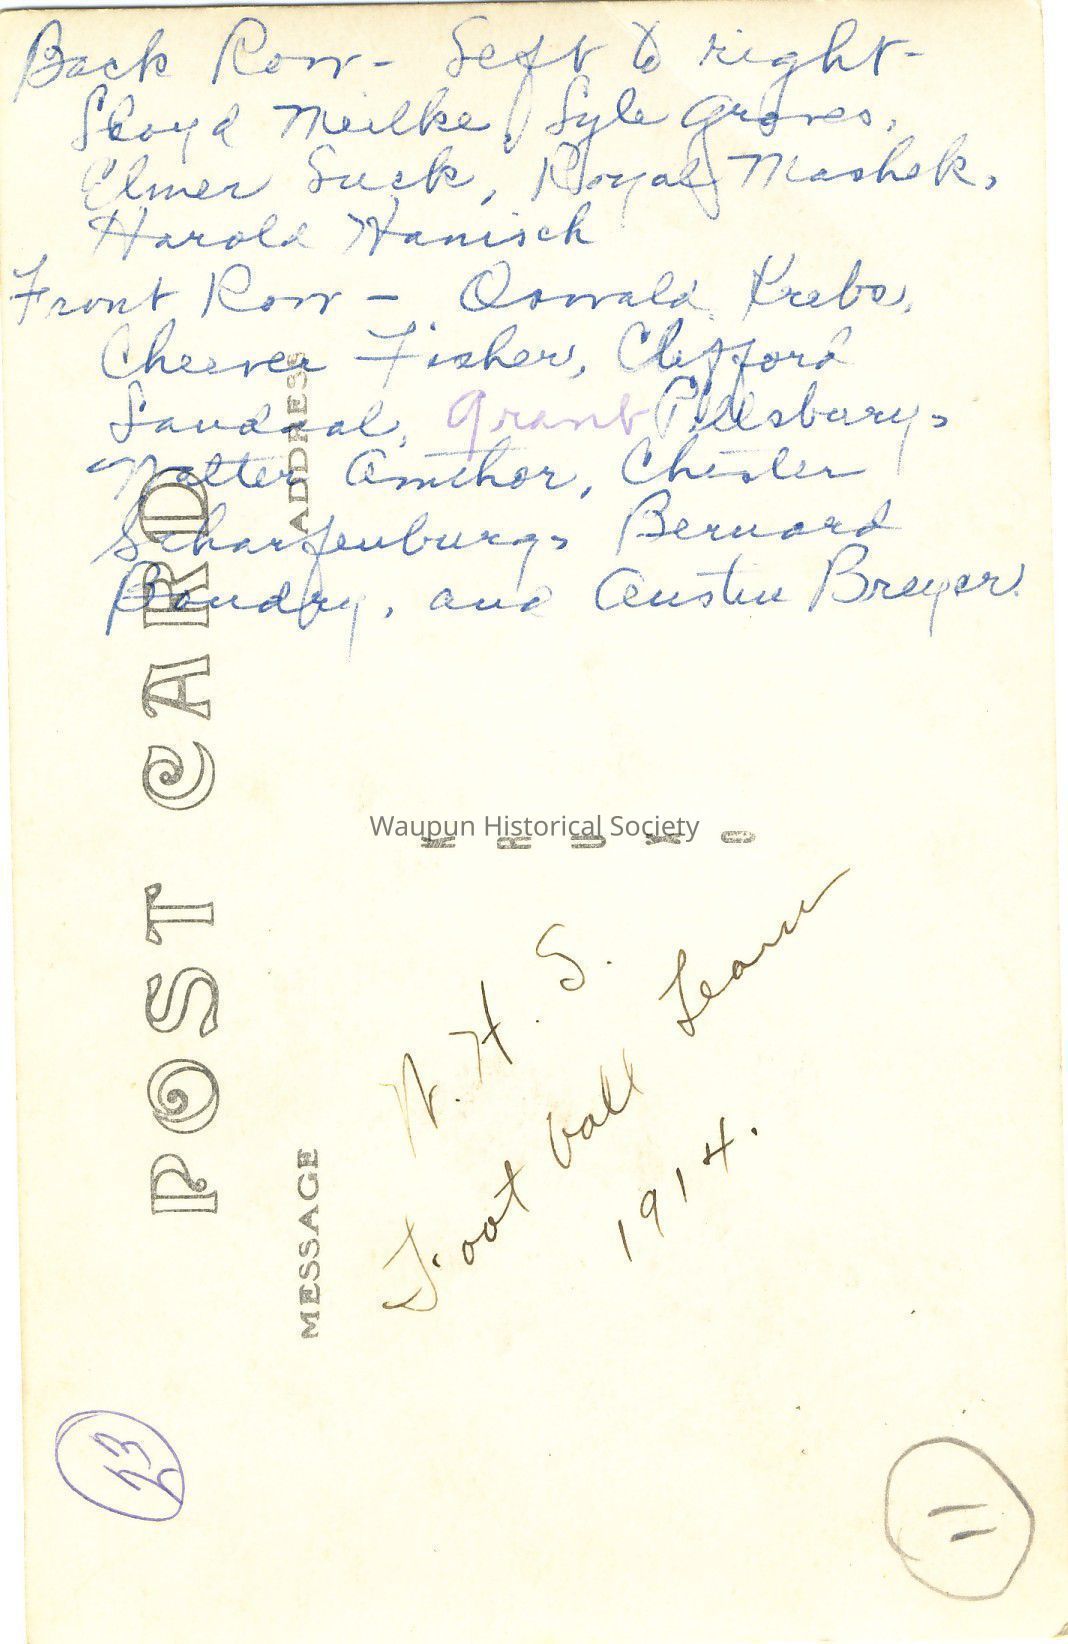 Back Row - Left to right -
Lloyd Meilke, Lyle Groves,
Elmer Luck, Royal Mashek,
Harold Hanisch
Front Row - Oswald Krebs,
Cheever Fisher, Clifford
Sandaal, Grant Pillsbury,
Amthor, Chester
Scharfenburg, Bernard
Boudry, and Austin Breyer.
POST CARD
ADDRESS
MESSAGE
Waupun Historical Society
K R U X O
W. H. S.
Foot ball Team
1914.
23
11